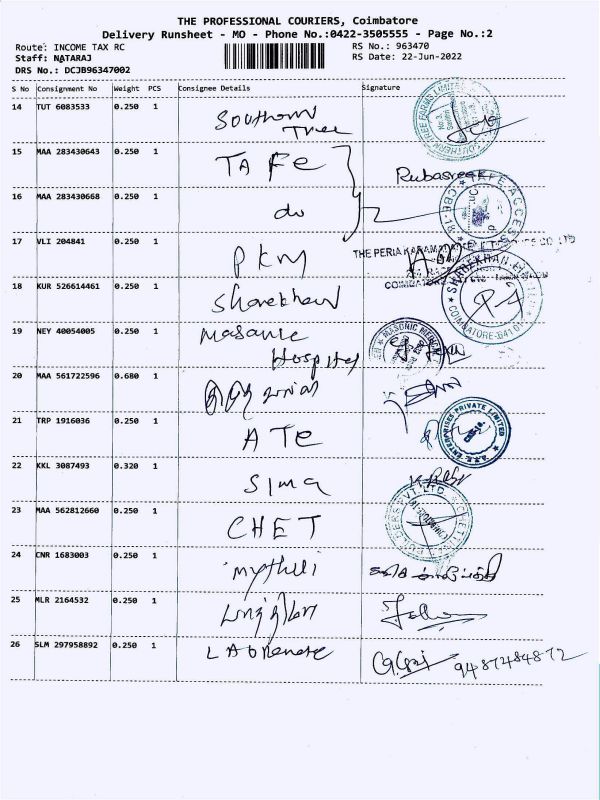 THE PROFESSIONAL COURIERS, Coimbatore
Delivery Runsheet - MO - Phone No.:0422-3505555 - Page No.:2
Route: INCOME TAX RC
RS No.: 963470
Staff: NATARAJ
RS Date: 22-Jun-2022
DRS No.: DCJB96347002
S No Consignment No Weight PCS Consignee Details Signature
14 TUT 6083533 0.250 1 Southern Tree
15 MAA 283430643 0.250 1 TAFE Rubasree
16 MAA 283430668 0.250 1 do
17 VLI 204841 0.250 1 PKM
18 KUR 526614461 0.250 1 Sharekhan
19 NEY 40054005 0.250 1 Masonic Hospital
20 MAA 561722596 0.680 1
21 TRP 1916036 0.250 1 ATE
22 KKL 3087493 0.320 1 SIMA
23 MAA 562812660 0.250 1 CHET
24 CNR 1683003 0.250 1 mythili
25 MLR 2164532 0.250 1
26 SLM 297958892 0.250 1 9487284872